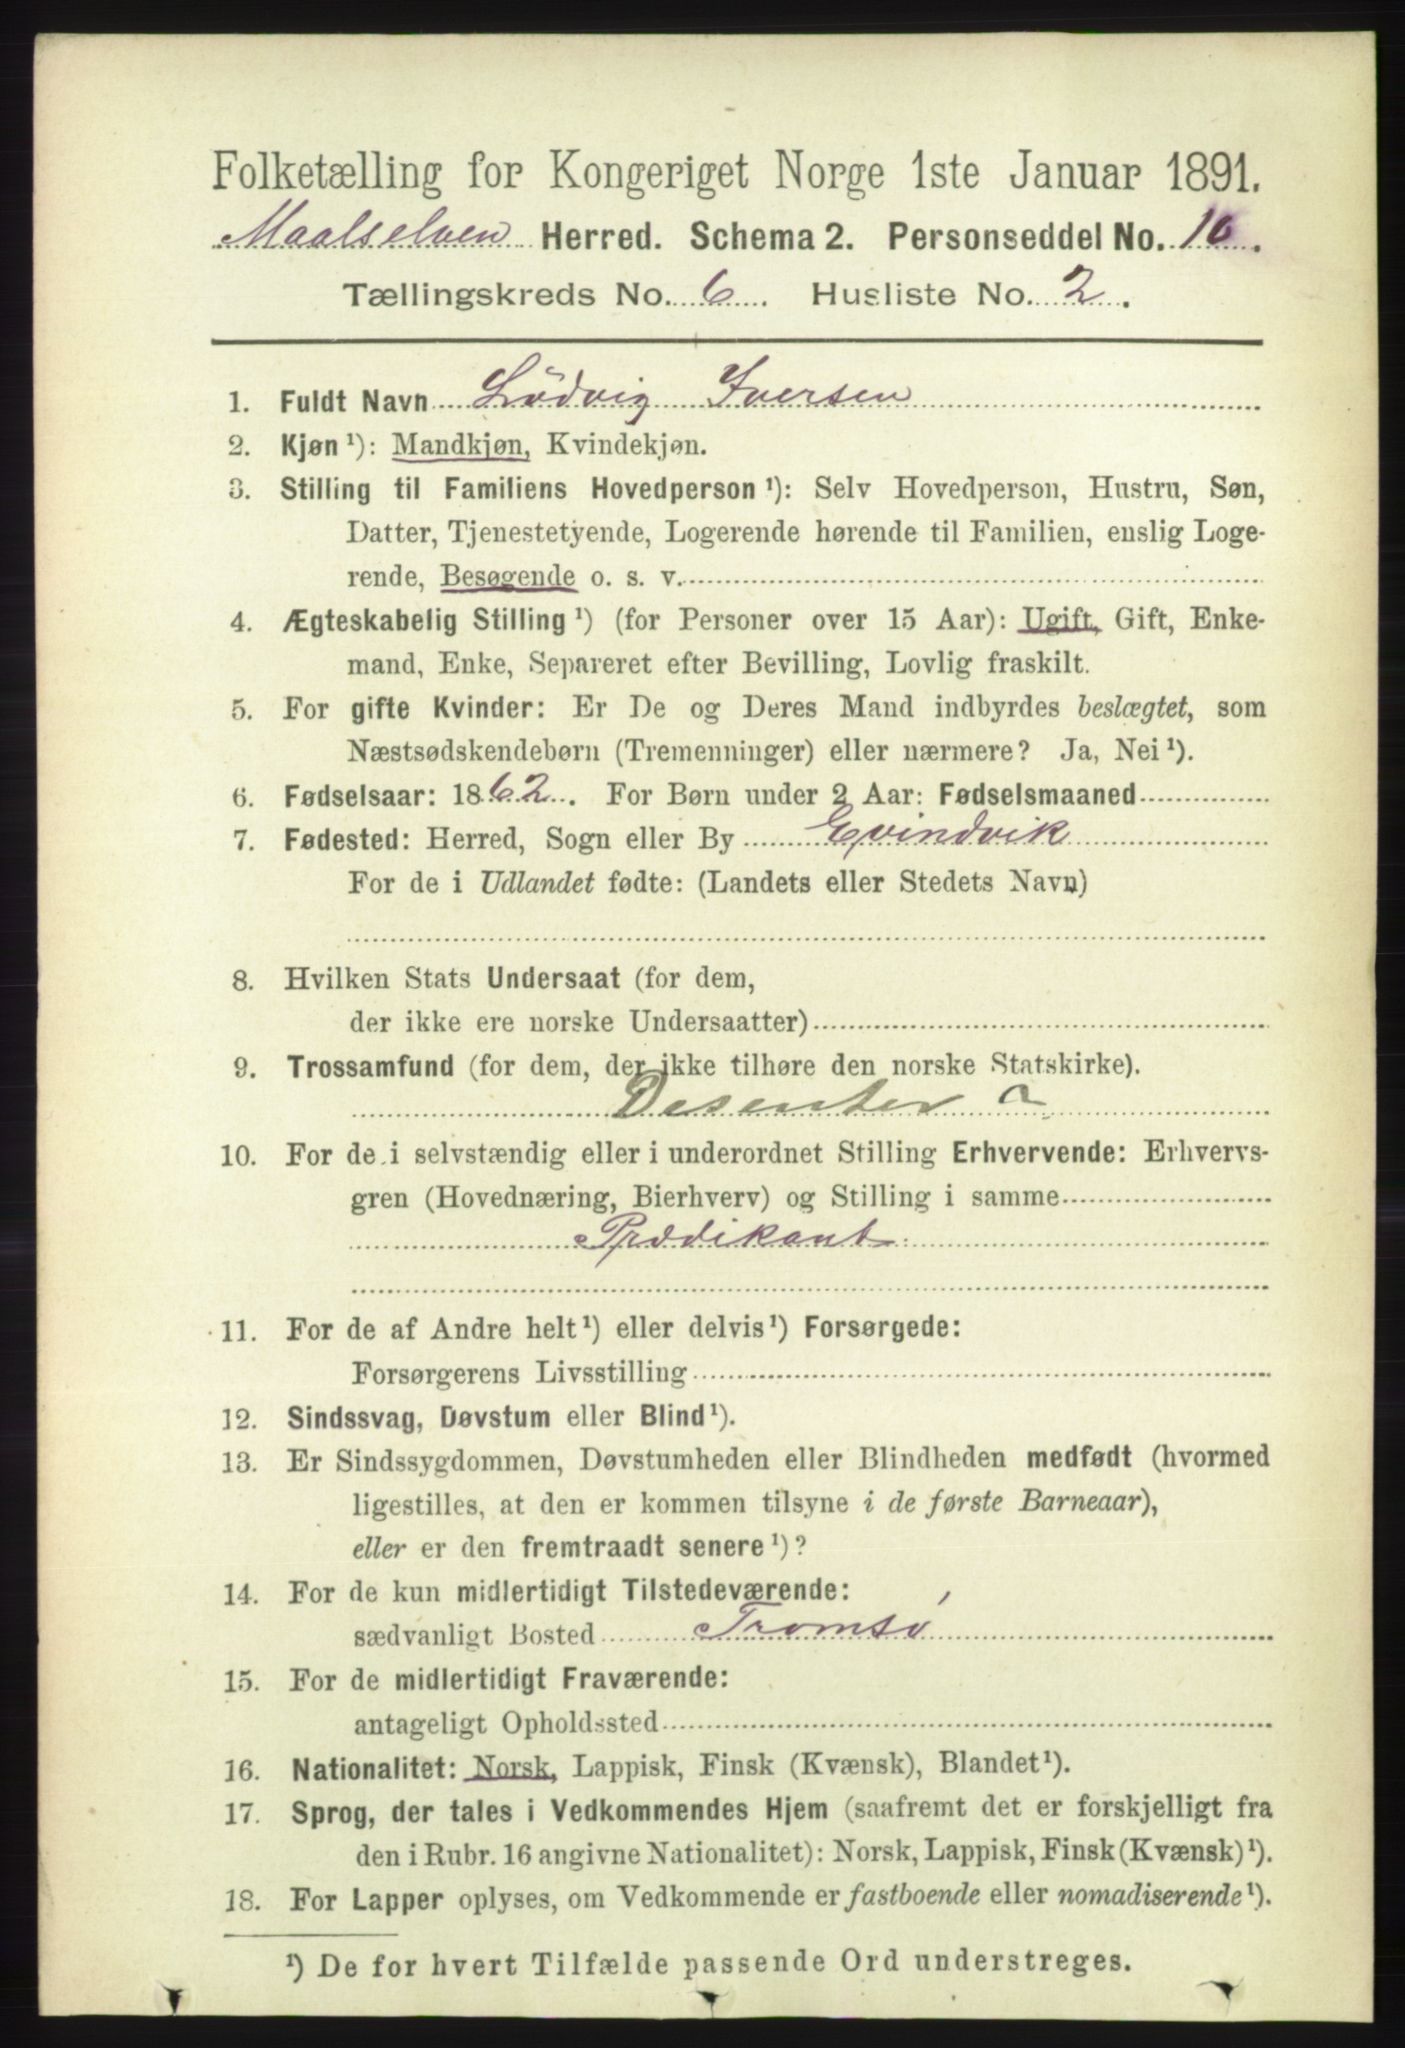 Folketælling for Kongeriget Norge 1ste Januar 1891.
Maalselven Herred. Schema 2. Personseddel No. 16.
Tællingskreds No. 6. Husliste No. 2.
1. Fuldt Navn Ludvig Iversen
2. Kjøn ¹): Mandkjøn, Kvindekjøn.
3. Stilling til Familiens Hovedperson ¹): Selv Hovedperson, Hustru, Søn,
Datter, Tjenestetyende, Logerende hørende til Familien, enslig Loge-
rende, Besøgende o. s. v.
4. Ægteskabelig Stilling ¹) (for Personer over 15 Aar): Ugift, Gift, Enke-
mand, Enke, Separeret efter Bevilling, Lovlig fraskilt.
5. For gifte Kvinder: Er De og Deres Mand indbyrdes beslægtet, som
Næstsødskendebørn (Tremenninger) eller nærmere? Ja, Nei ¹).
6. Fødselsaar: 1862. For Børn under 2 Aar: Fødselsmaaned
7. Fødested: Herred, Sogn eller By Evindvik
For de i Udlandet fødte: (Landets eller Stedets Navn)
8. Hvilken Stats Undersaat (for dem,
der ikke ere norske Undersaatter)
9. Trossamfund (for dem, der ikke tilhøre den norske Statskirke).
Desenter
10. For de i selvstændig eller i underordnet Stilling Erhvervende: Erhvervs-
gren (Hovednæring, Bierhverv) og Stilling i samme
Prædikant
11. For de af Andre helt ¹) eller delvis ¹) Forsørgede:
Forsørgerens Livsstilling
12. Sindssvag, Døvstum eller Blind ¹).
13. Er Sindssygdommen, Døvstumheden eller Blindheden medfødt (hvormed
ligestilles, at den er kommen tilsyne i de første Barneaar),
eller er den fremtraadt senere ¹)?
14. For de kun midlertidigt Tilstedeværende:
sædvanligt Bosted Tromsö
15. For de midlertidigt Fraværende:
antageligt Opholdssted
16. Nationalitet: Norsk, Lappisk, Finsk (Kvænsk), Blandet ¹).
17. Sprog, der tales i Vedkommendes Hjem (saafremt det er forskjelligt fra
den i Rubr. 16 angivne Nationalitet): Norsk, Lappisk, Finsk (Kvænsk) ¹).
18. For Lapper oplyses, om Vedkommende er fastboende eller nomadiserende ¹).
¹) De for hvert Tilfælde passende Ord understreges.